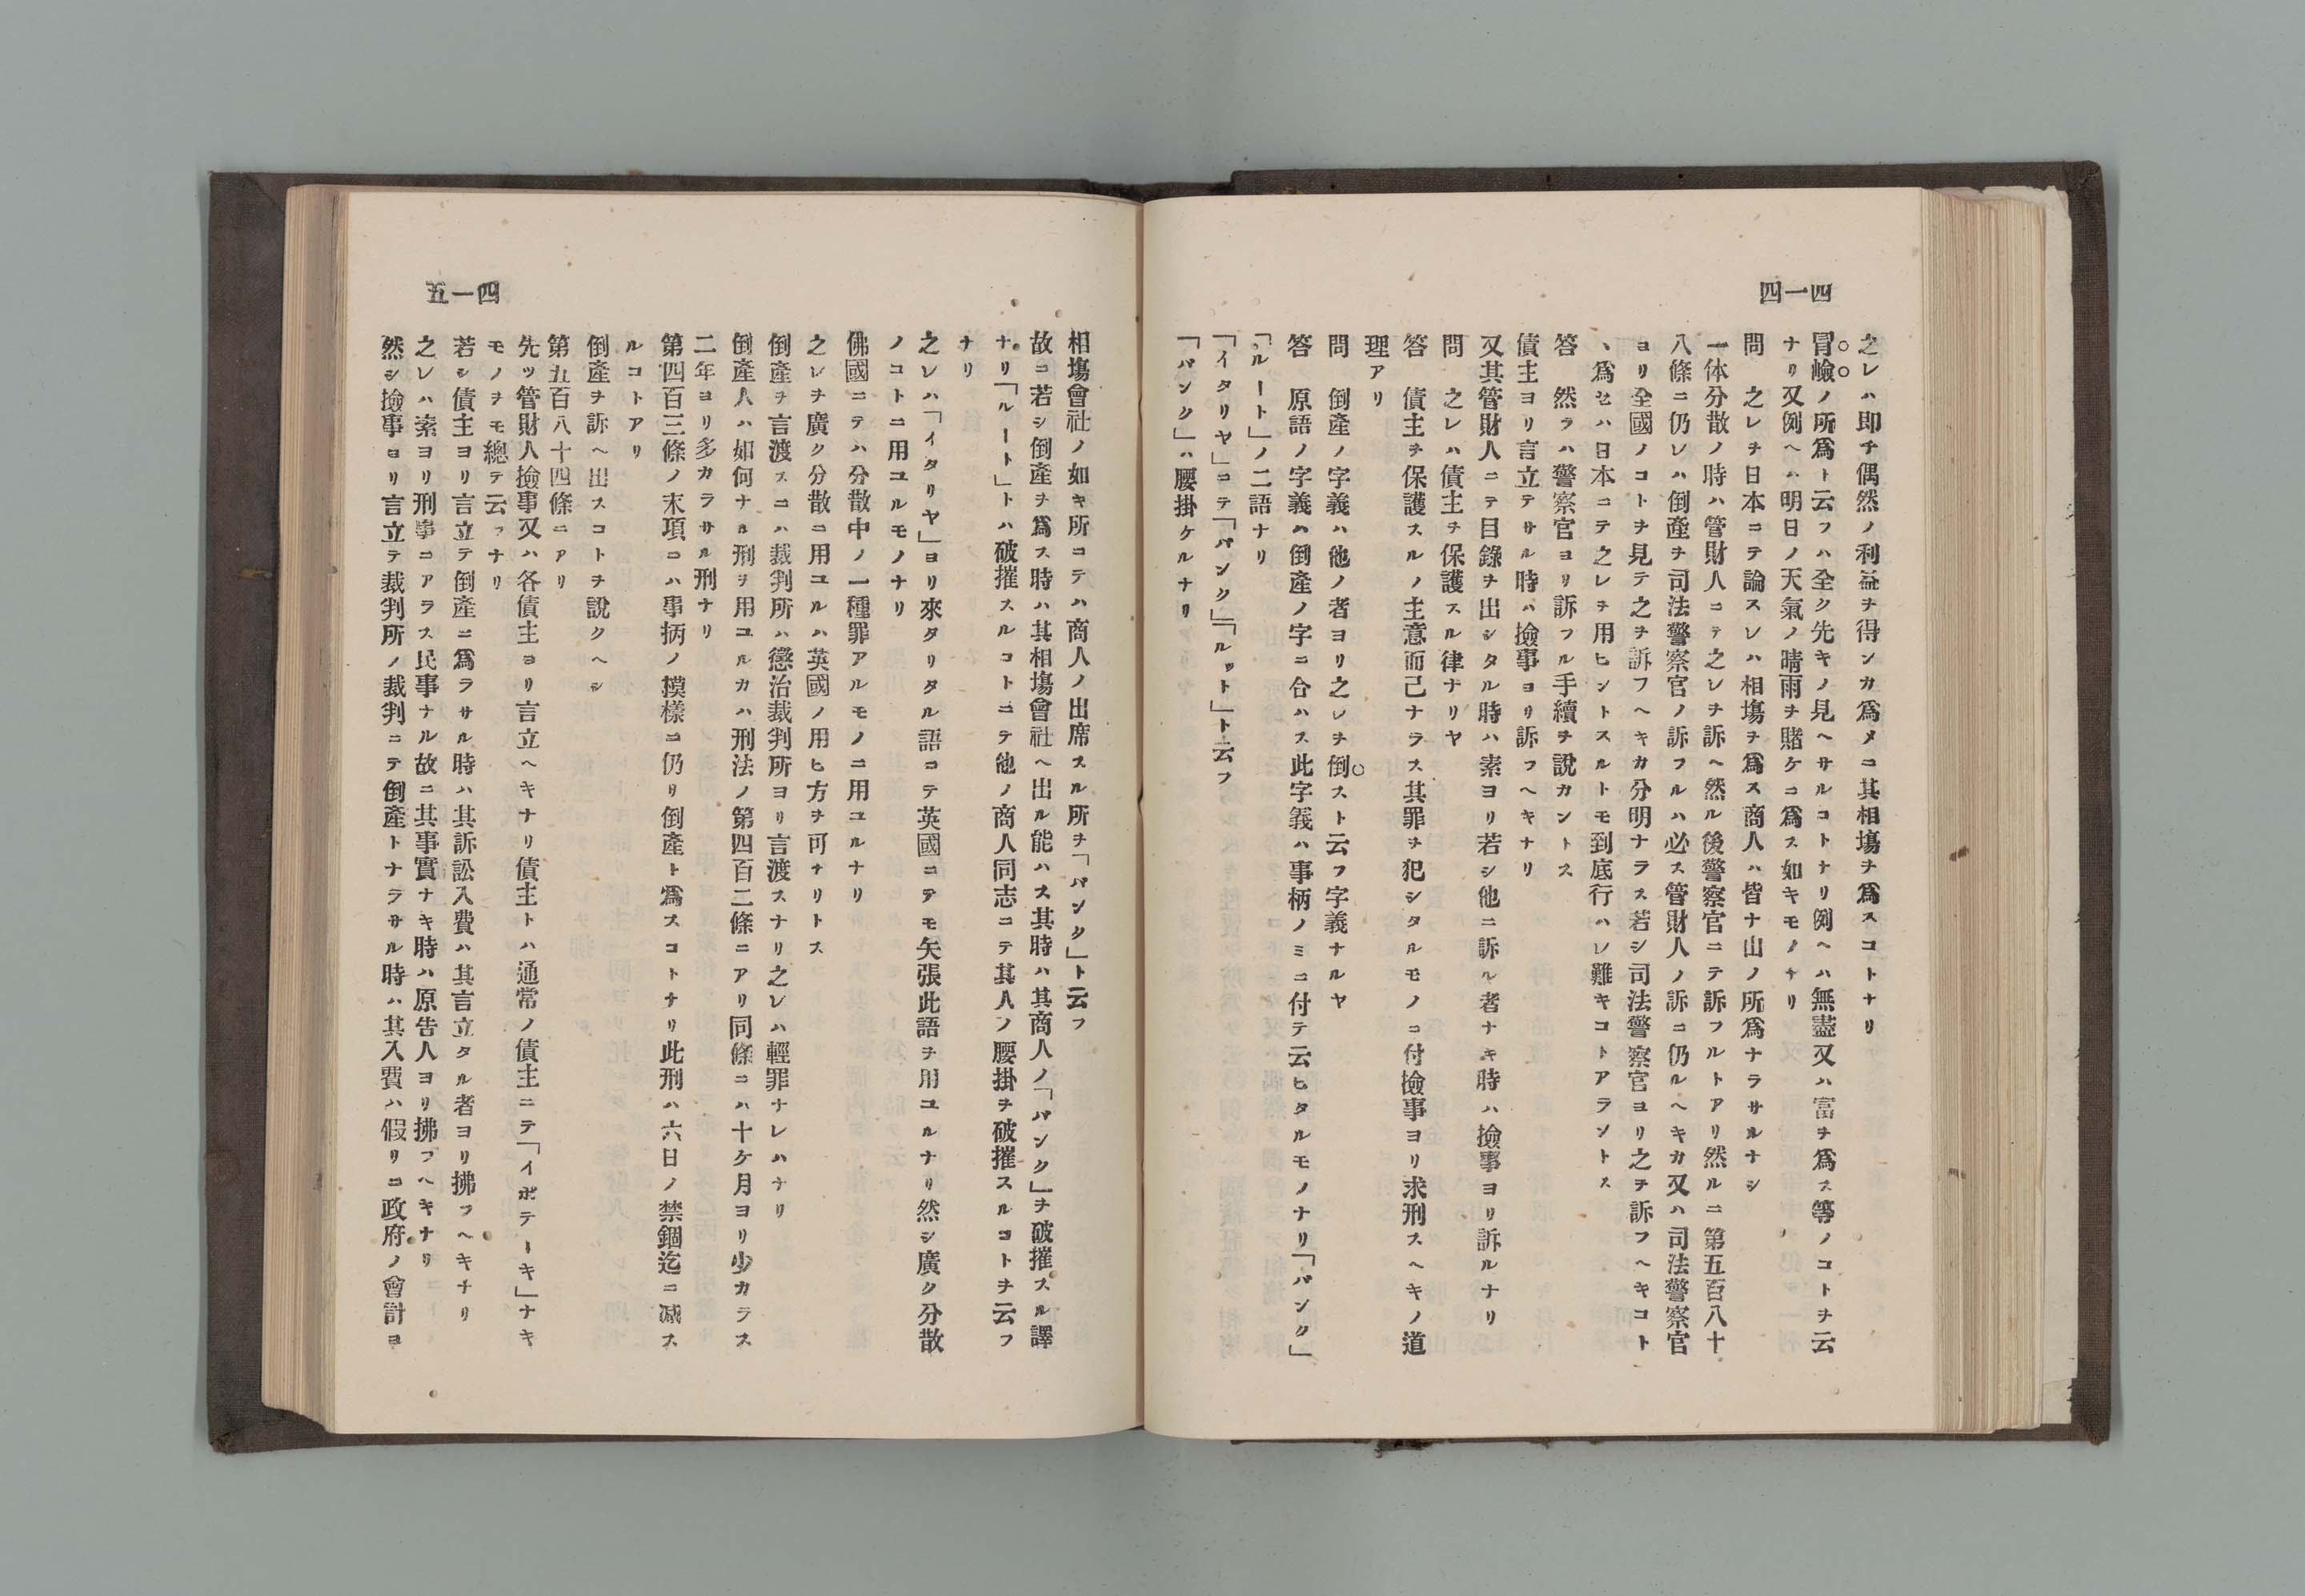 四一四
之レハ即チ偶然ノ利益ヲ得ンカ爲メニ其相塲ヲ爲スコトナリ
冒嶮ノ所爲ト云フハ全ク先キノ見ヘサルコトナリ例ヘハ無盡又ハ富チ爲ス等ノコトヲ云
ナリ又例ヘハ明日ノ天氣ノ晴雨チ賭ケニ爲ス如キモノナリ
問　之レチ日本ニテ論スレハ相塲チ爲ス商人ハ皆ナ山ノ所爲ナラサルナシ
一体分散ノ時ハ管財人ニテ之レチ訴ヘ然ル後警察官ニテ訴フルトアリ然ルニ第五百八十
八條ニ仍レハ倒產チ司法警察官ノ訴フルハ必ス管財人ノ訴ニ仍ルヘキカ又ハ司法警察官
ヨリ全國ノコトヲ見テ之チ訴フヘキカ分明ナラス若シ司法警察官ヨリ之ヲ訴フヘキコト
ヽ爲セハ日本ニテ之レヲ用ヒントスルトモ到底行ハレ難キコトアラントス
答　然ラハ警察官ヨリ訴フル手續ヲ說カントス
債主ヨリ言立テサル時ハ撿事ヨリ訴フヘキナリ
又其管財人ニテ目錄チ出シタル時ハ素ヨリ若シ他ニ訴ル者ナキ時ハ撿事ヨリ訴ルナリ
問　之レハ債主チ保護スル律ナリヤ
答　債主チ保護スルノ主意而己ナラス其罪ヲ犯シタルモノニ付撿事ヨリ求刑スヘキノ道
理アリ
問　倒產ノ字義ハ他ノ者ヨリ之レチ倒スト云フ字義ナルヤ
答　原語ノ字義ハ倒產ノ字ニ合ハス此字義ハ事柄ノミニ付テ云ヒタルモノナリ「バンク」
「ルート」ノ二語ナリ
「イタリヤ」ニテ「バンク」「ルット」ト云フ
「バンク」ハ腰掛ケルナリ
四一五
相塲會社ノ如キ所ニテハ商人ノ出席スル所ヲ「バンク」ト云フ
故ニ若シ倒產ヲ爲ス時ハ其相塲會社ヘ出ル能ハス其時ハ其商人ノ「バンク」ヲ破摧スル譯
ナリ「ルート」トハ破摧スルコトニテ他ノ商人同志ニテ其人ノ腰掛ヲ破摧スルコトヲ云フ
ナリ
之レハ「イタリヤ」ヨリ來タリタル語ニテ英國ニテモ矢張此語ヲ用ユルナリ然シ廣ク分散
ノコトニ用ユルモノナリ
佛國ニテハ分散中ノ一種罪アルモノニ用ユルナリ
之レヲ廣ク分散ニ用ユルハ英國ノ用ヒ方ヲ可ナリトス
倒產ヲ言渡スニハ裁判所ハ懲治裁判所ヨリ言渡スナリ之レハ輕罪ナレハナリ
倒產人ハ如何ナル刑ヲ用ユルカハ刑法ノ第四百二條ニアリ同條ニハ十ケ月ヨリ少カラス
二年ヨリ多カラサル刑ナリ
第四百三條ノ末項ニハ事柄ノ摸樣ニ仍リ倒產ト爲スコトナリ此刑ハ六日ノ禁錮迄ニ减ス
ルコトアリ
倒產ヲ訴ヘ出スコトチ說クヘシ
第五百八十四條ニアリ
先ツ管財人撿事又ハ各債主ヨリ言立ヘキナリ債主トハ通常ノ債主ニテ「イポテーキ」ナキ
モノヲモ總テ云フナリ
若シ債主ヨリ言立テ倒產ニ爲ラサル時ハ其訴訟入費ハ其言立タル者ヨリ拂フヘキナリ
之レハ素ヨリ刑事ニアラス民事ナル故ニ其事實ナキ時ハ原告人ヨリ拂フヘキナリ
然シ撿事ヨリ言立テ裁判所ノ裁判ニテ倒產トナラサル時ハ其入費ハ假リニ政府ノ會計ヨ